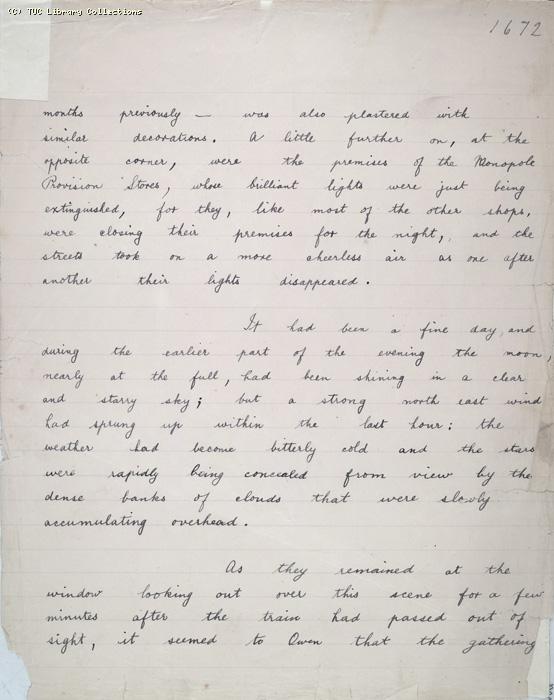 (C) TUC Library Collections
1672
months previously — was also plastered with
similar decorations. A little further on, at the
opposite corner, were the premises of the Monopole
Provision Stores, whose brilliant lights were just being
extinguished, for they, like most of the other shops,
were closing their premises for the night, and the
streets took on a more cheerless air as one after
another their lights disappeared.
It had been a fine day, and
during the earlier part of the evening the moon,
nearly at the full, had been shining in a clear
and starry sky; but a strong north east wind
had sprung up within the last hour: the
weather had become bitterly cold and the stars
were rapidly being concealed from view by the
dense banks of clouds that were slowly
accumulating overhead.
As they remained at the
window looking out over this scene for a few
minutes after the train had passed out of
sight, it seemed to Owen that the gathering